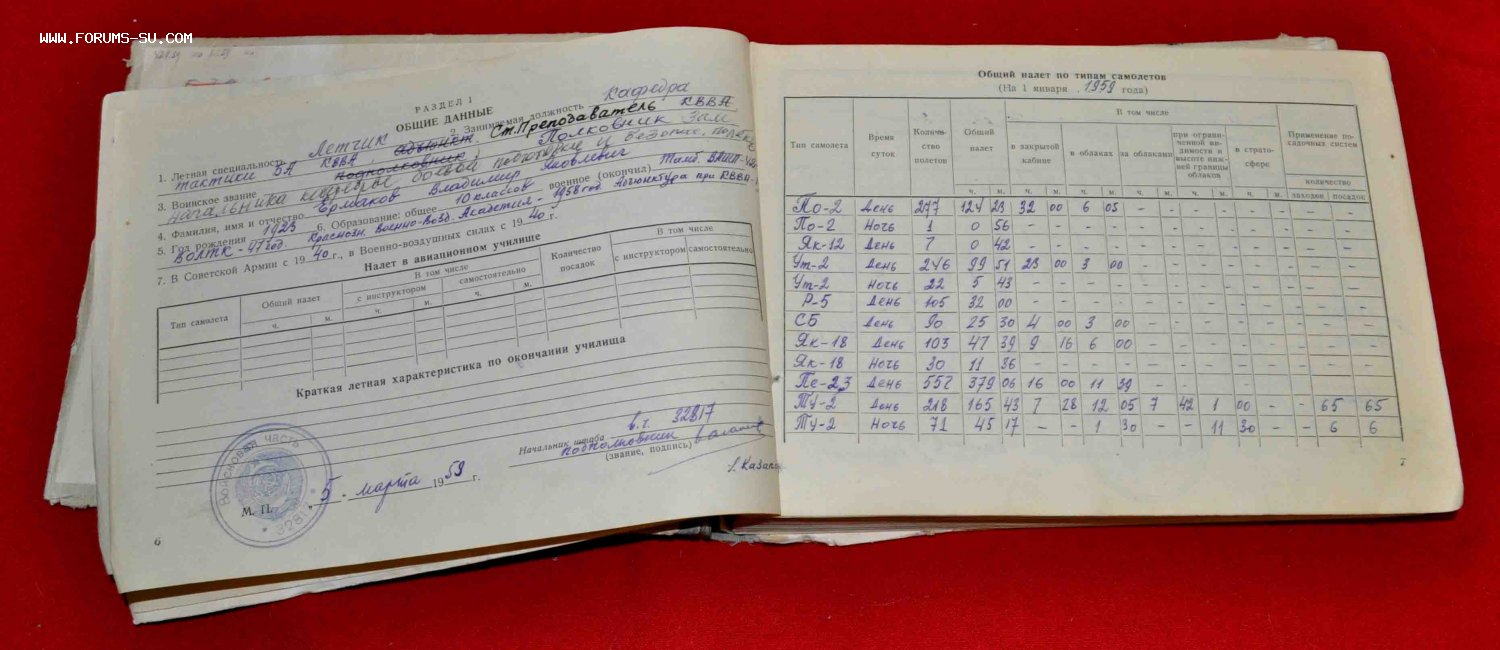 WWW.FORUMS-SU.COM
РАЗДЕЛ 1
ОБЩИЕ ДАННЫЕ
1. Летная специальность Летчик 2. Занимаемая должность Кафедра
тактики ВА КВВА, адъюнкт, Ст. Преподаватель КВВА
3. Воинское звание Подполковник; Полковник Зам
начальника кафедры боевой подготовки и безопас. полетов
4. Фамилия, имя и отчество Ермаков Владимир Яковлевич
5. Год рождения 1923 6. Образование: общее 10 классов военное (окончил) Тамб. ВАШП-42г.
ВОЛТК - 47 год. Краснозн. Военно-Возд. Академия - 1958 год Адъюнктура при КВВА
7. В Советской Армии с 1940 г., в Военно-воздушных силах с 1940 г.
Налет в авиационном училище
Тип самолета Общий налет В том числе Количество посадок В том числе
с инструктором самостоятельно с инструктором самостоятельно
ч. м. ч. м. ч. м.
Краткая летная характеристика по окончании училища
Начальник штаба в.ч. 32817
подполковник
(звание, подпись)
/. Казако
Войсковая часть
32817
М. П. „5" марта 1959 г.
6
Общий налет по типам самолетов
(На 1 января 1959 года)
Тип самолета Время суток Количество полетов Общий налет В том числе Применение посадочных систем
в закрытой кабине в облаках за облаками при ограниченной видимости и высоте нижней границы облаков в стратосфере количество
ч. м. ч. м. ч. м. ч. м. ч. м. ч. м. заходов посадок
По-2 День 277 124 23 32 00 6 05 - - - - - - - -
По-2 Ночь 1 0 56 - - - - - - - - - - - -
Як-12 День 7 0 42 - - - - - - - - - - - -
Ут-2 День 246 99 51 23 00 3 00 - - - - - - - -
Ут-2 Ночь 22 5 43 - - - - - - - - - - - -
Р-5 День 105 32 00 - - - - - - - - - - - -
СБ День 90 25 30 4 00 3 00 - - - - - - - -
Як-18 День 103 47 39 9 16 6 00 - - - - - - - -
Як-18 Ночь 30 11 36 - - - - - - - - - - - -
Пе-2,3 День 552 379 06 16 00 11 39 - - - - - - - -
ТУ-2 День 218 165 43 7 28 12 05 7 42 1 00 - - 65 65
Ту-2 Ночь 71 45 17 - - 1 30 - - 11 30 - - 6 6
7